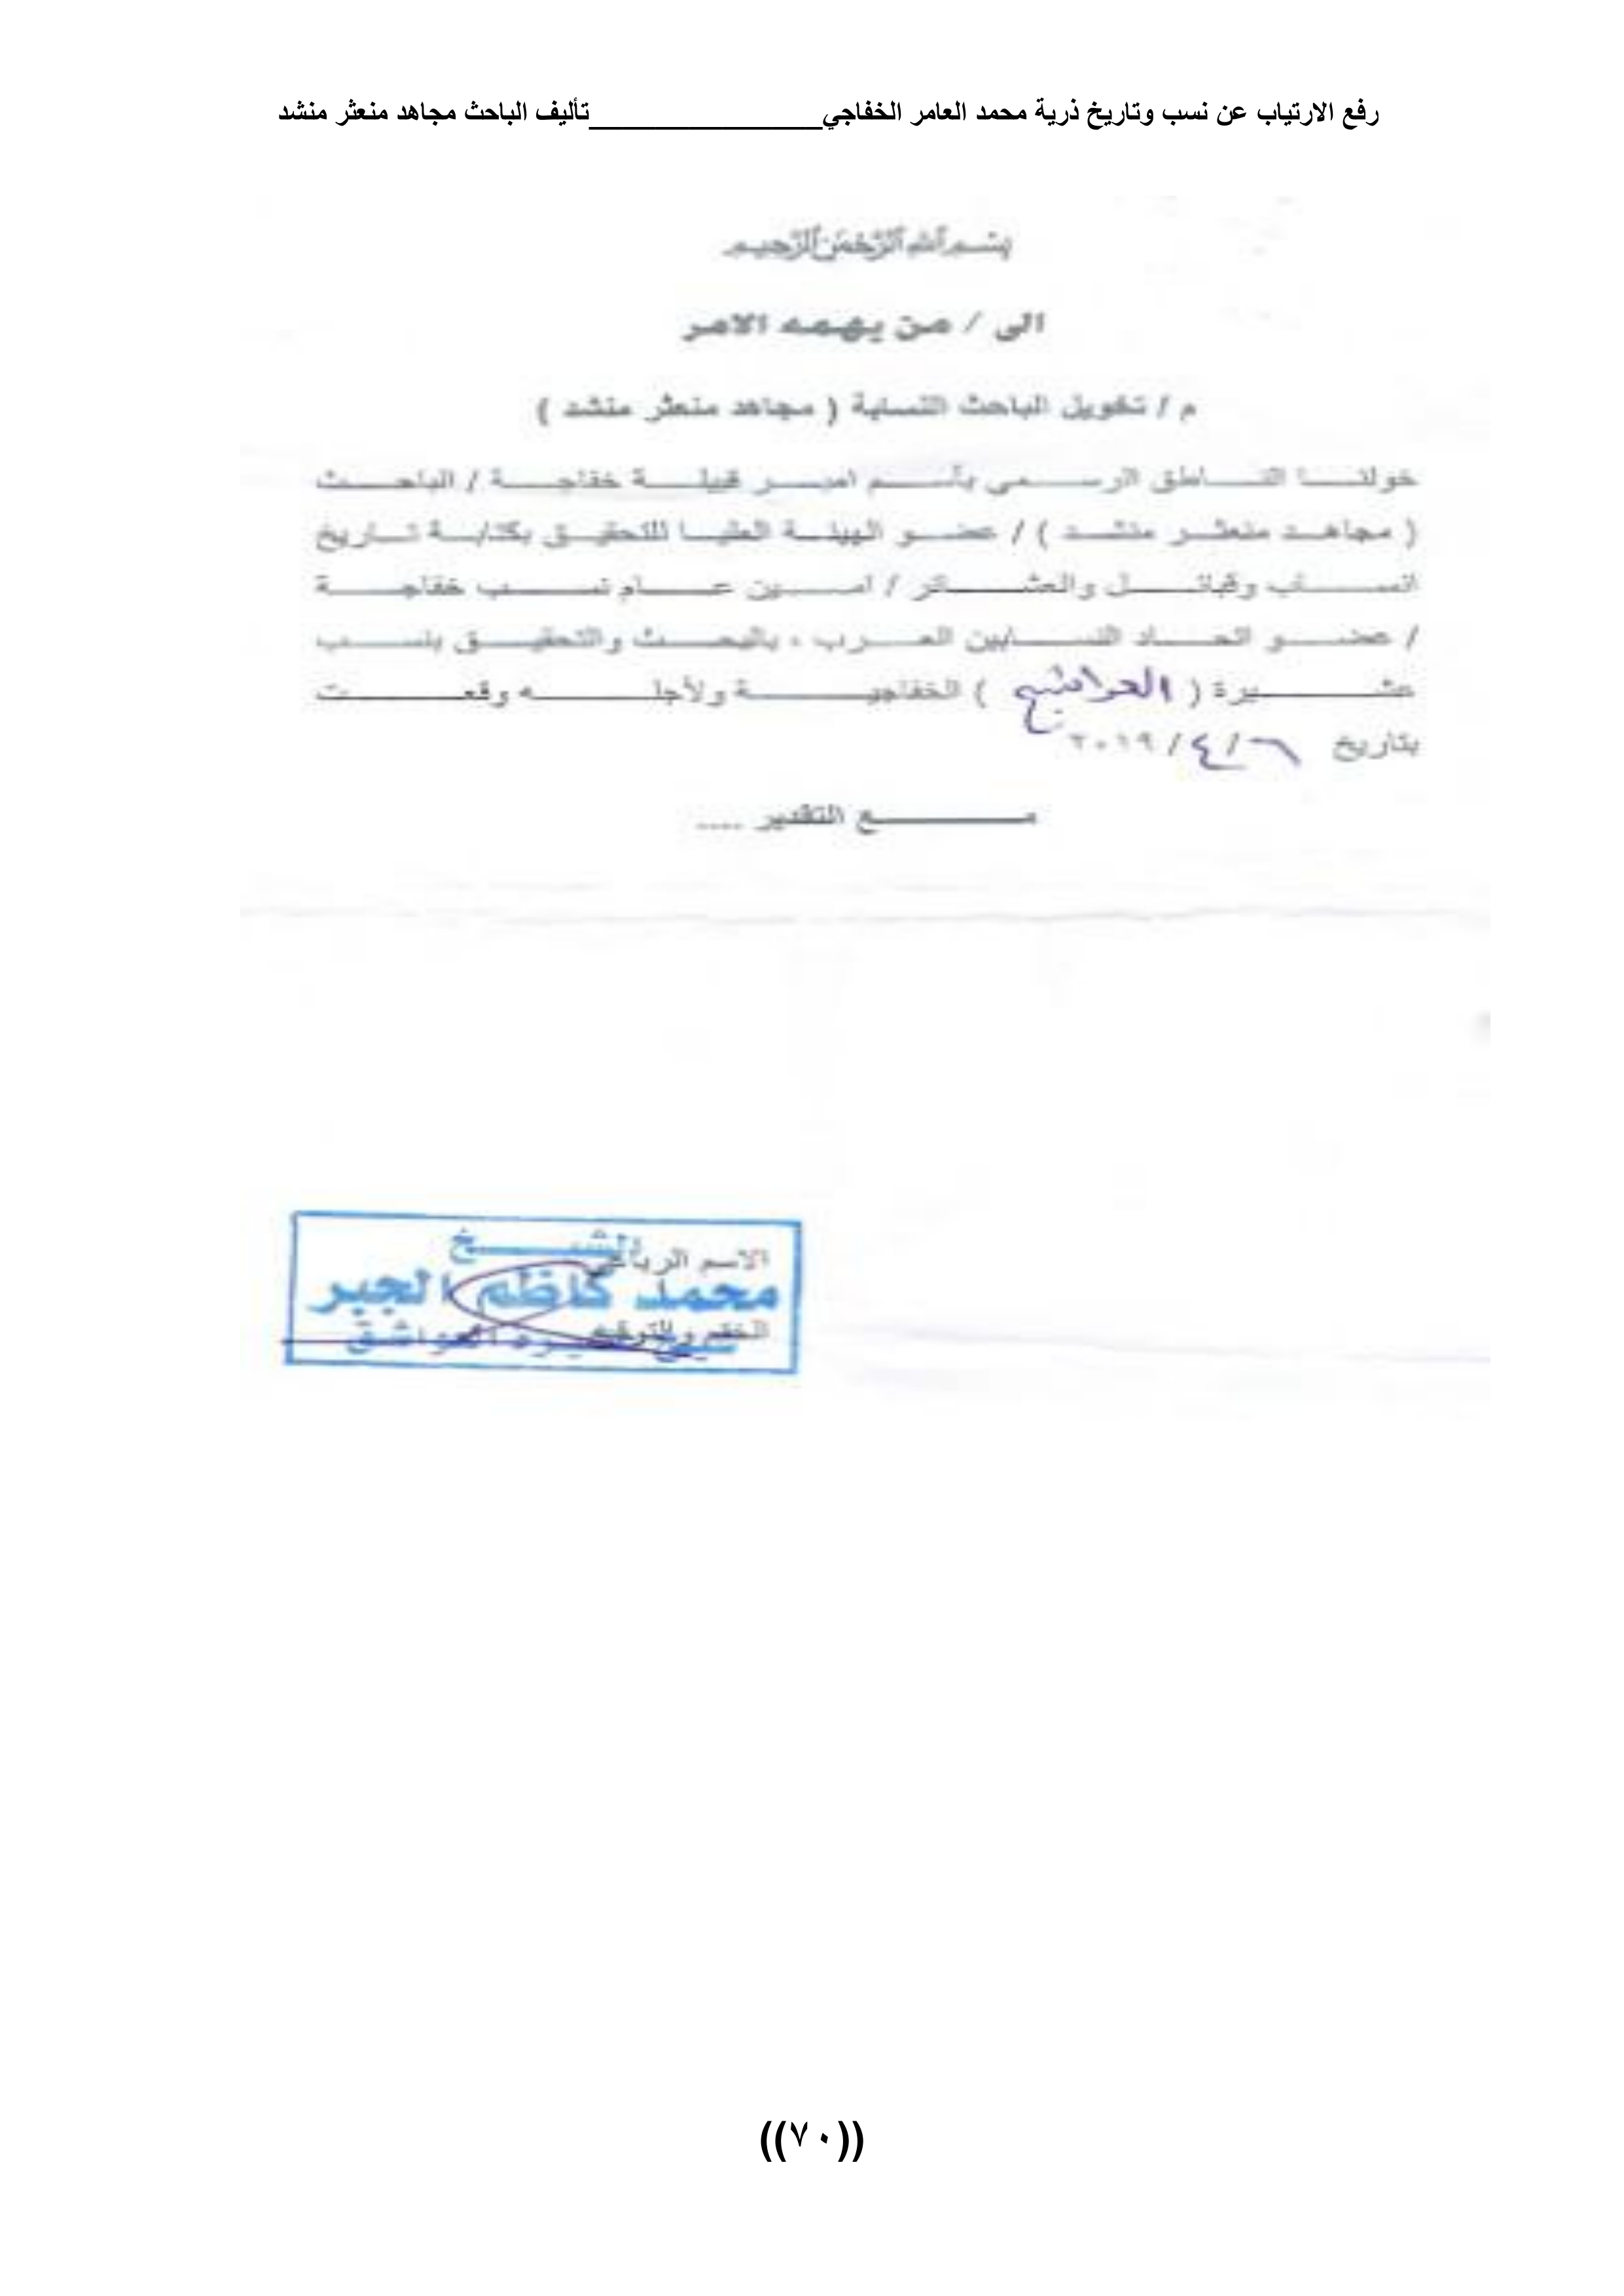 رفع الارتياب عن نسب وتاريخ ذرية محمد العامر الخفاجي________________تأليف الباحث مجاهد منعثر منشد
بسم الله الرحمن الرحيم
الى / من يهمه الامر
م / تخويل الباحث النسابة ( مجاهد منعثر منشد )
خولنا الناطق الرسمي بأسم امير قبيلة خفاجة / الباحث
( مجاهد منعثر منشد ) / عضو الهيئة العليا للتحقيق بكتابة تاريخ
انساب وقبائل والعشائر / امين عام نسب خفاجة
/ عضو اتحاد النسابين العرب ، بالبحث والتحقيق بنسب
عشيرة ( ) الخفاجية ولأجله وقعت
بتاريخ ٦ / ٤ / ٢٠١٩
مع التقدير ....
الشيخ
الاسم الرباعي
محمد كاظم الجبر
الختم والتوقيع
((٧٠))